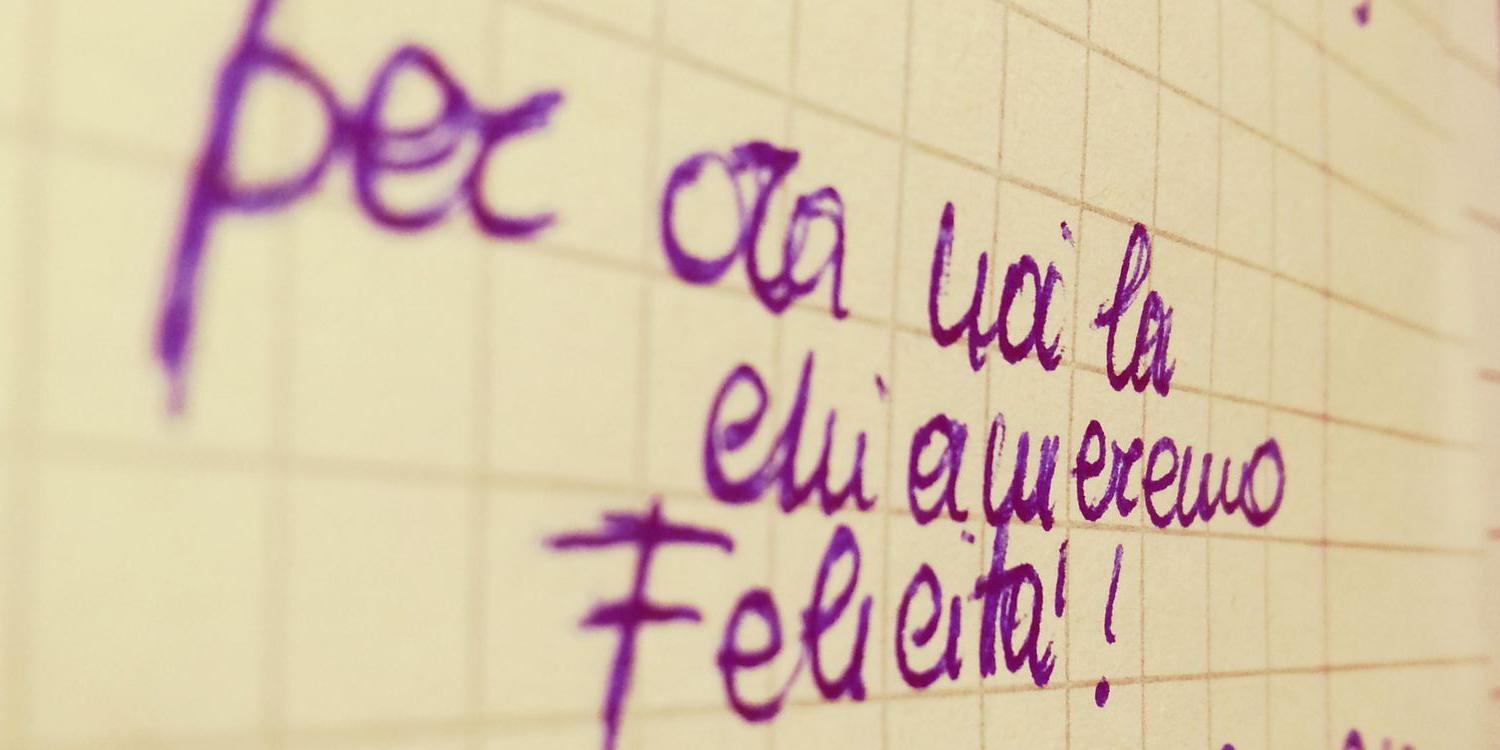 per ora noi la
chiameremo
Felicita'!